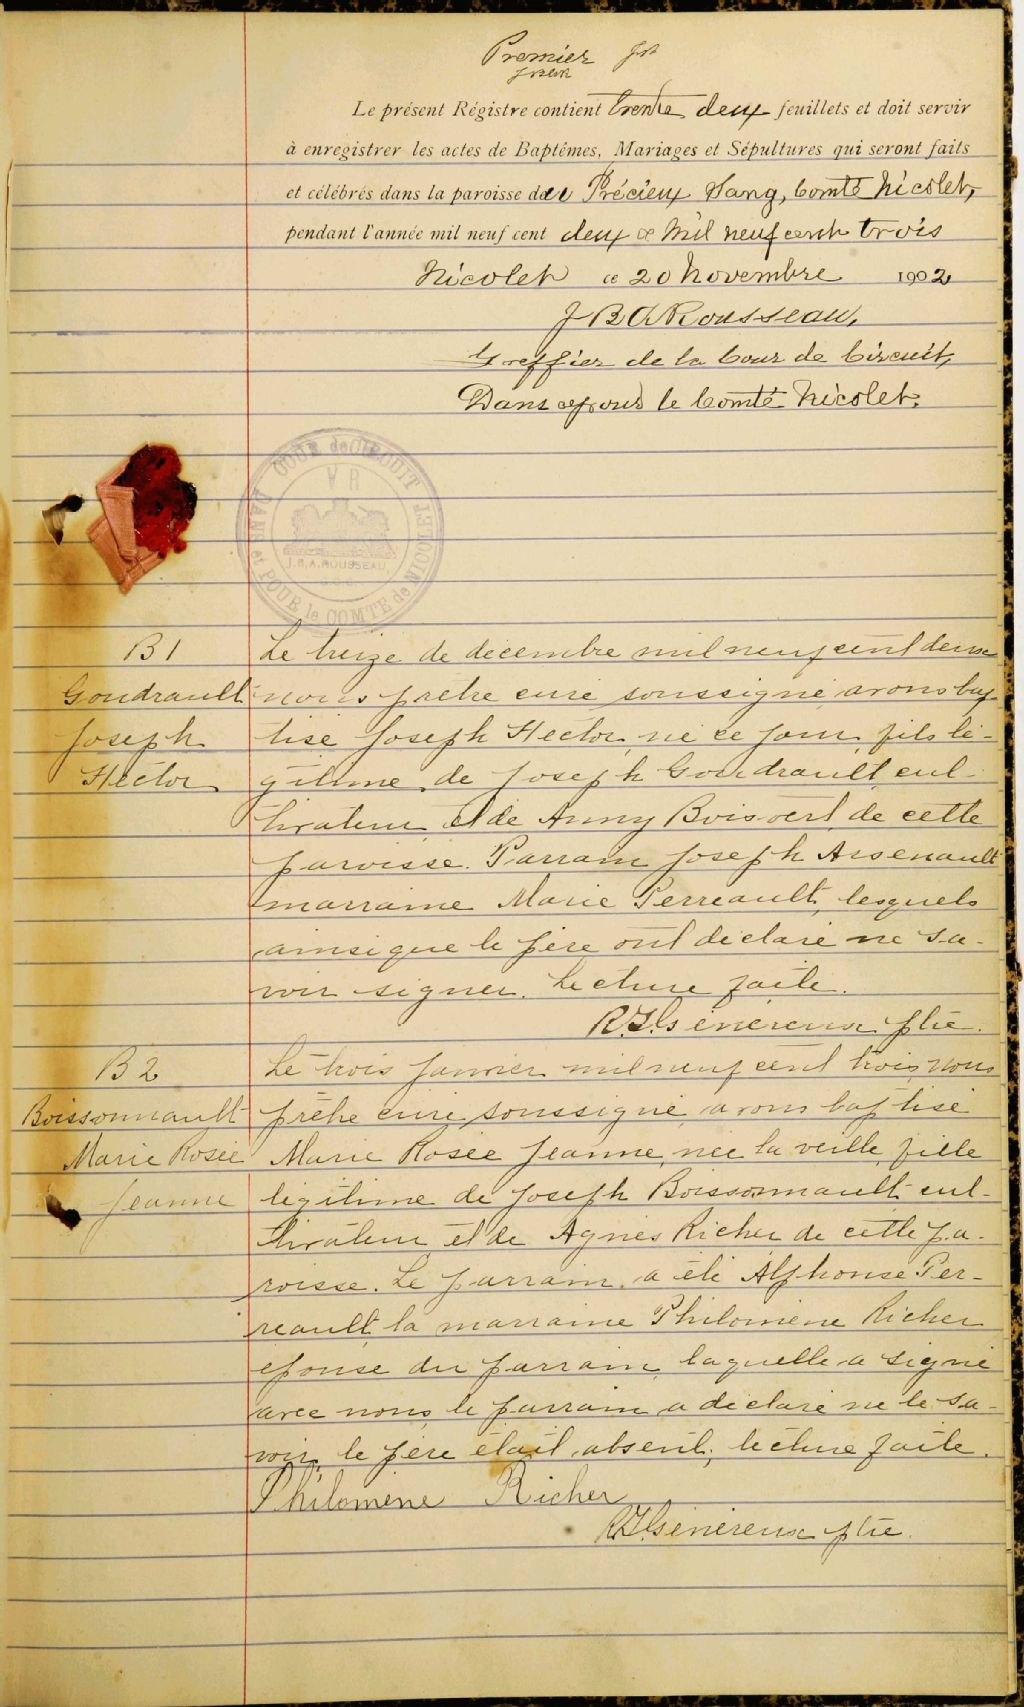 Premier
Le présent Régistre contient trente deux feuillets et doit servir
à enregistrer les actes de Baptêmes, Mariages et Sépultures qui seront faits
et célébrés dans la paroisse du Précieux Sang, Comté Nicolet,
pendant l'année mil neuf cent deux & Mil neuf cent trois
Nicolet ce 20 Novembre 1902
J B A Rousseau,
Greffier de la Cour de Circuit,
Dans et pour le Comté Nicolet.
COUR de CIRCUIT
DANS et POUR le COMTE de NICOLET
V R
J.B.A. ROUSSEAU,
B 1
Goudrault
Joseph
Hector
Le treize de décembre mil neuf cent deux
nous prêtre curé soussigné, avons bap-
tisé Joseph Hector, né ce jour, fils lé-
gitime de Joseph Goudrault, cul-
tivateur, et de Anny Boisvert, de cette
paroisse. Parrain Joseph Arsenault
marraine Marie Perreault, lesquels
ainsi que le père ont déclaré ne sa-
voir signer. Lecture faite.
Généreux ptre.
B 2
Boissonnault
Marie Rosée
Jeanne
Le trois janvier mil neuf cent trois, nous
prêtre curé, soussigné, avons baptisé
Marie Rosée Jeanne, née la veille, fille
légitime de Joseph Boissonnault cul-
tivateur et de Agnès Richer de cette pa-
roisse. Le parrain a été Alphonse Per-
reault, la marraine Philomène Richer
épouse du parrain, laquelle a signé
avec nous, le parrain a déclaré ne le sa-
voir, le père était absent; lecture faite.
Philomène Richer
Généreux ptre.